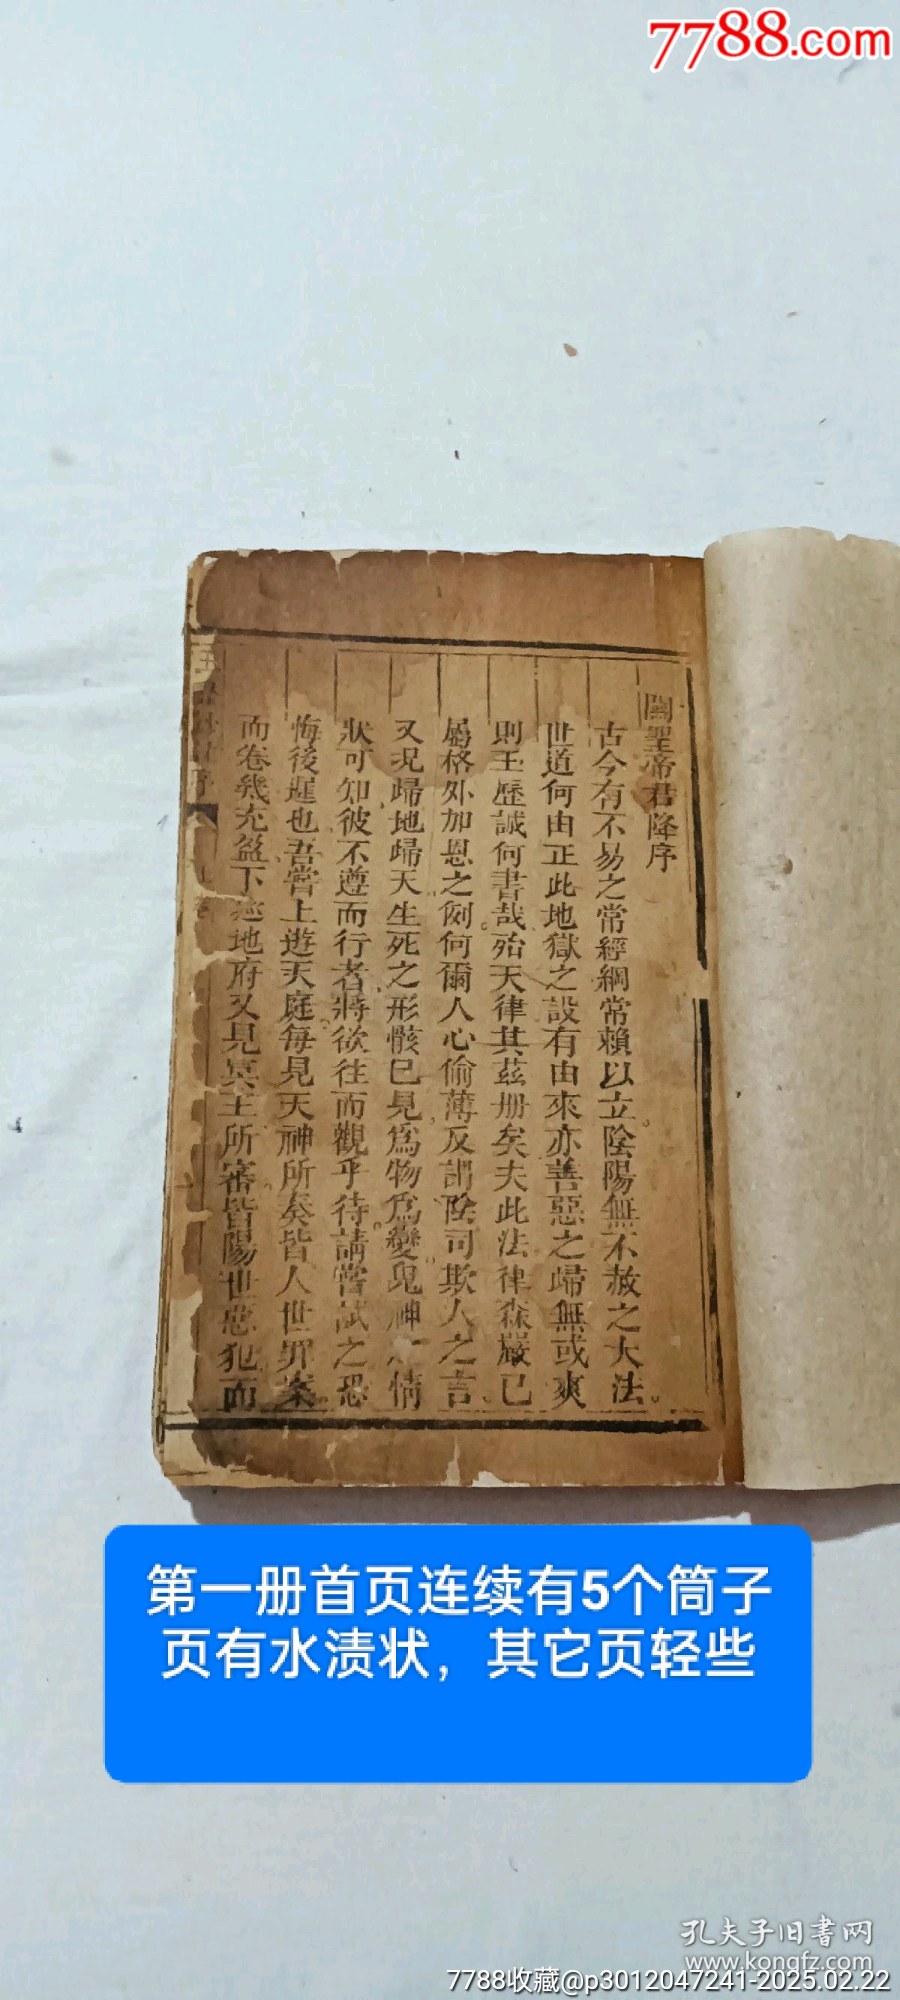 7788.com
關聖帝君降序
古今有不易之常經綱常賴以立陰陽無不赦之大法。
世道何由正此地獄之設有由來亦善惡之歸無或爽
則玉歷誠何書哉殆天律其茲册矣夫此法律森嚴已
屬格外加恩之例何爾人心偷薄反謂陰司欺人之言
又況歸地歸天生死之形骸已見爲物爲變鬼神情
狀可知彼不遵而行者將欲往而觀乎待請嘗試之恐
悔後遲也吾嘗上遊天庭每見天神所奏皆人世罪案
而卷幾充盈下地府又見冥王所審皆陽世惡犯而
第一册首页连续有5个筒子
页有水渍状，其它页轻些
孔夫子旧书网
www.kongfz.com
7788收藏@p3012047241-2025.02.22